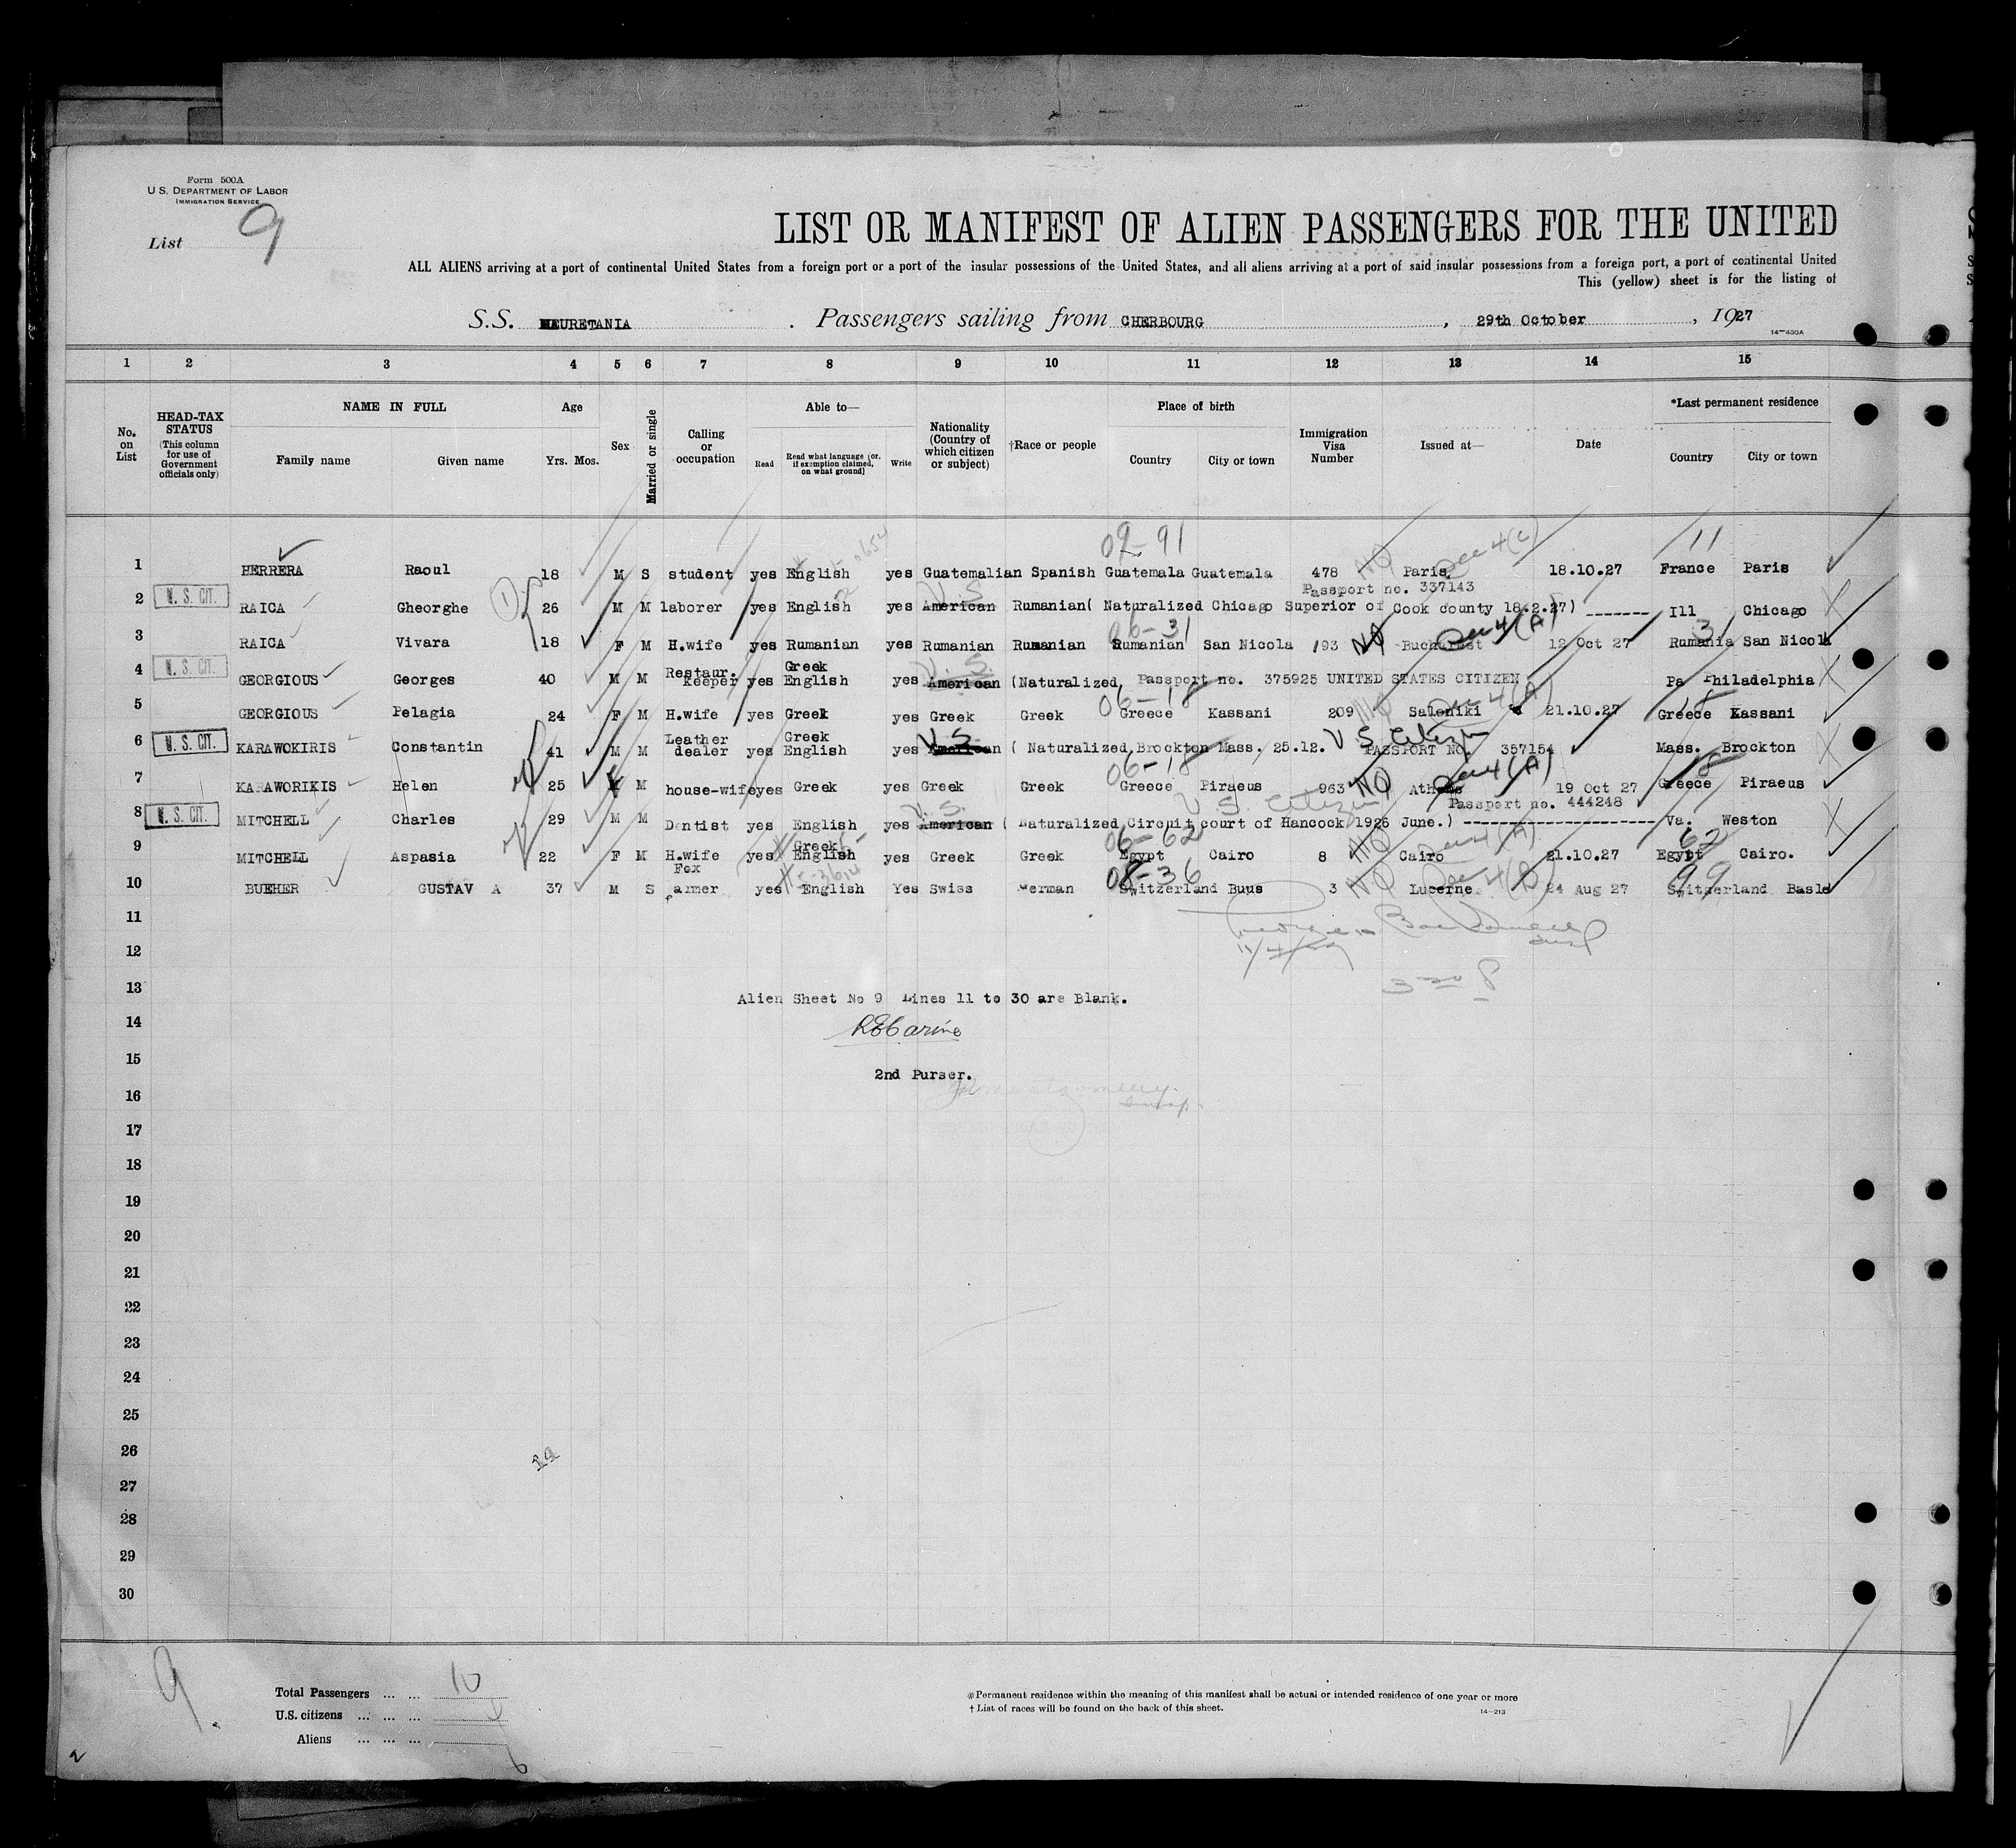 Form 500A
U S. DEPARTMENT OF LABOR
IMMIGRATION SERVICE
List 9
LIST OR MANIFEST OF ALIEN PASSENGERS FOR THE UNITED
ALL ALIENS arriving at a port of continental United States from a foreign port or a port of the insular possessions of the United States, and all aliens arriving at a port of said insular possessions from a foreign port, a port of continental United
This (yellow) sheet is for the listing of
S.S. MAURETANIA . Passengers sailing from CHERBOURG , 29th October , 1927
14—430A
1 2 3 4 5 6 7 8 9 10 11 12 13 14 15
No. on List
HEAD-TAX STATUS (This column for use of Government officials only)
NAME IN FULL
Family name Given name
Age
Yrs. Mos.
Sex
Married or single
Calling or occupation
Able to—
Read Read what language (or, if exemption claimed, on what ground) Write
Nationality (Country of which citizen or subject)
†Race or people
Place of birth
Country City or town
Immigration Visa Number
Issued at—
Date
*Last permanent residence
Country City or town
02-91 11
1 HERRERA Raoul 18 M S student yes English yes Guatemalian Spanish Guatemala Guatemala 478 NQ Paris. Sec 4(c) 18.10.27 France Paris
Passport no. 337143
2 U. S. CIT. RAICA Gheorghe 26 M M laborer yes English yes American U S Rumanian( Naturalized Chicago Superior of Cook county 18.2.27) ------- Ill Chicago
06-31 31
3 RAICA Vivara 18 F M H.wife yes Rumanian yes Rumanian Rumanian Rumanian San Nicola 193 NQ Bucharest Sec 4(A) 12 Oct 27 Rumania San Nicola
4 U. S. CIT. GEORGIOUS Georges 40 M M Restaur. keeper yes Greek English yes American U. S. (Naturalized, Passport no. 375925 UNITED STATES CITIZEN Pa Philadelphia
06-18 18
5 GEORGIOUS Pelagia 24 F M H.wife yes Greek yes Greek Greek Greece Kassani 209 NQ Saloniki Sec 4(A) 21.10.27 Greece Kassani
6 U. S. CIT. KARAWOKIRIS Constantin 41 M M Leather dealer yes Greek English yes American U S ( Naturalized,Brockton Mass, 25.12. U S Citizen PASSPORT NO. 357154 Mass. Brockton
06-18 18
7 KARAWORIKIS Helen 25 F M house-wife yes Greek yes Greek Greek Greece Piraeus 963 NQ Athens Sec 4(A) 19 Oct 27 Greece Piraeus
U S. Citizen Passport no. 444248
8 U. S. CIT. MITCHELL Charles 29 M M Dentist yes English yes American U. S. ( Naturalized,Circuit court of Hancock 1926 June.) ---------------------- Va. Weston
06-62 62
9 MITCHELL Aspasia 22 F M H.wife yes Greek English yes Greek Greek Egypt Cairo 8 NQ Cairo Sec 4(A) 21.10.27 Egypt Cairo.
08-36 99
10 BUEHER GUSTAV A 37 M S Fox farmer yes English Yes Swiss German Switzerland Buus 3 NQ Lucerne Sec 4(B) 24 Aug 27 Switzerland Basle
11
12
13
Alien Sheet No 9 Lines 11 to 30 are Blank.
14
15
2nd Purser.
16
17
18
19
20
21
22
23
24
25
26
27
28
29
30
9.
Total Passengers ... ... 10
U.S. citizens ... ... ... 4
Aliens ... ... ... 6
*Permanent residence within the meaning of this manifest shall be actual or intended residence of one year or more
† List of races will be found on the back of this sheet.
14—213